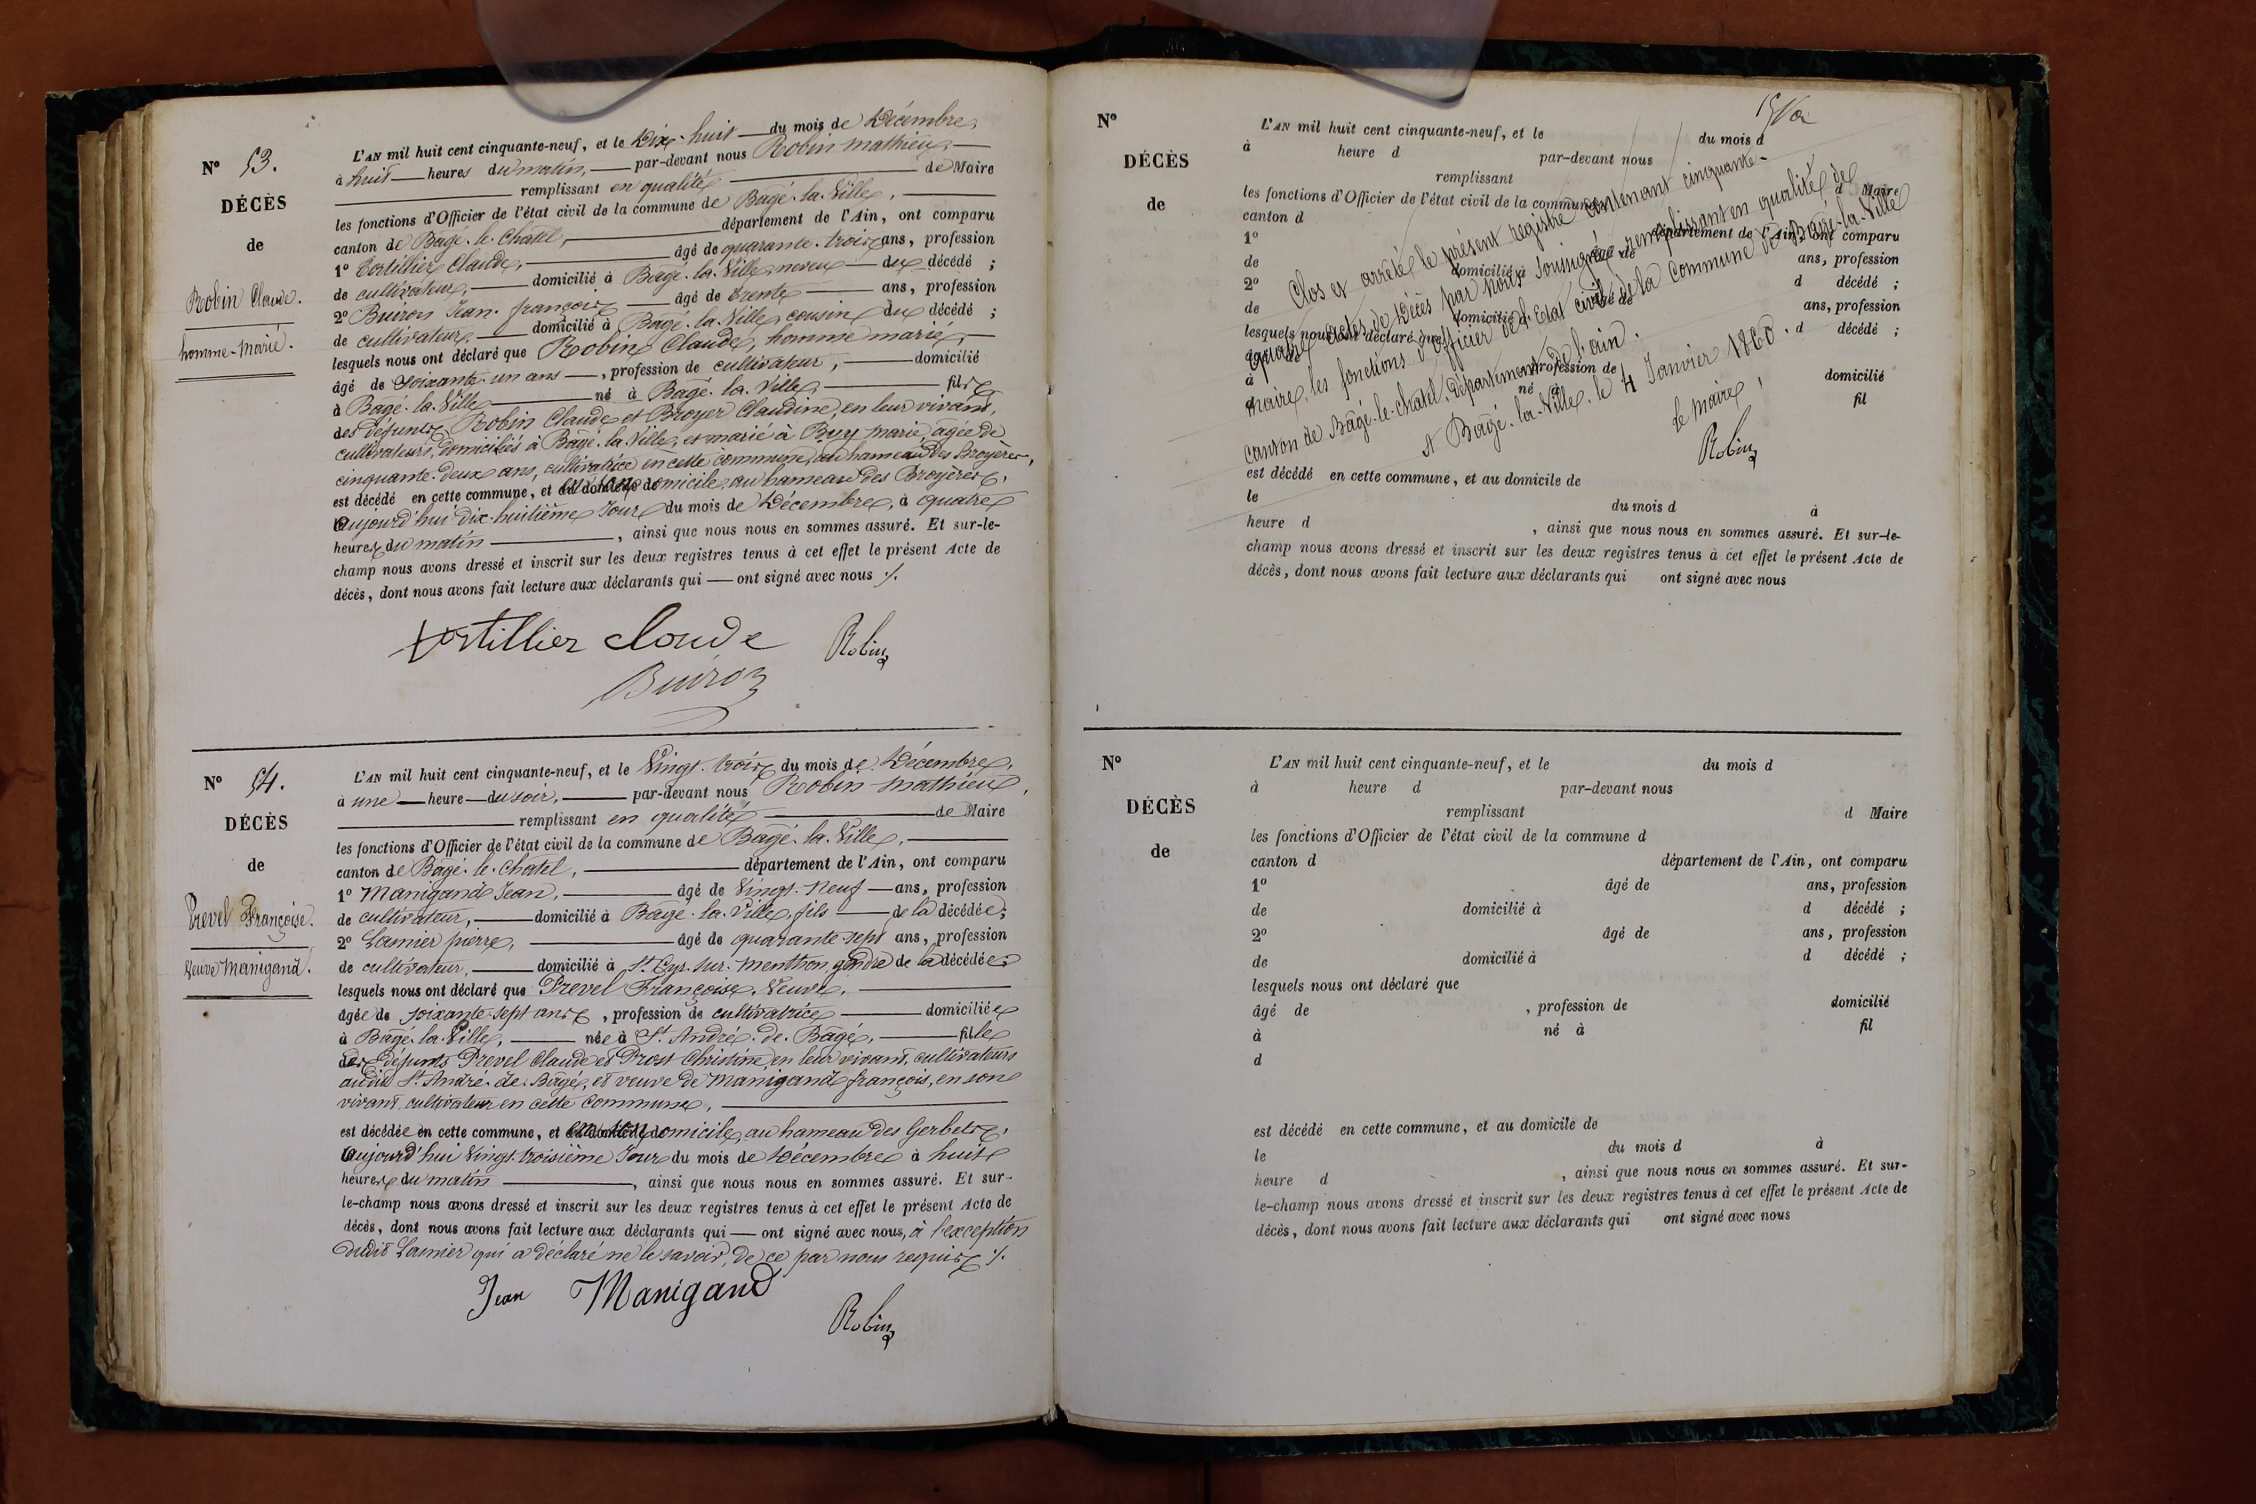 N° 53.
DÉCÈS
de
Robin Claude.
homme-marié.
L'AN mil huit cent cinquante-neuf, et le Dix-huit du mois de Décembre,
à huit heures du matin, par-devant nous Robin mathieu,
remplissant en qualité de Maire
les fonctions d'Officier de l'état civil de la commune de Bâgé-la-Ville,
canton de Bâgé-le-Chatel, département de l'Ain, ont comparu
1° Tortillier Claude, âgé de quarante-trois ans, profession
de cultivateur, domicilié à Bâgé-la-Ville, neveu du décédé ;
2° Buiron Jean-françois âgé de trente ans, profession
de cultivateur, domicilié à Bâgé-la-Ville, cousin du décédé ;
lesquels nous ont déclaré que Robin Claude, homme marié,
âgé de Soixante-un ans, profession de cultivateur, domicilié
à Bâgé-la-Ville né à Bâgé-la-Ville, fils
des défunts Robin Claude et Broyer Claudine, en leur vivant,
cultivateurs, domiciliés à Bâgé-la-Ville, et marié à Buy marie, agée de
cinquante-deux ans, cultivatrice en cette commune, au hameau des Broyères,
est décédé en cette commune, et en son domicile, au hameau des Broyères,
aujourd'hui dix-huitième Jour du mois de Décembre, à quatre
heures du matin, ainsi que nous nous en sommes assuré. Et sur-le-
champ nous avons dressé et inscrit sur les deux registres tenus à cet effet le présent Acte de
décès, dont nous avons fait lecture aux déclarants qui ont signé avec nous ./.
tortillier cloude Robin
Buiron
N° 54.
DÉCÈS
de
Prevel Françoise.
Veuve Manigand.
L'AN mil huit cent cinquante-neuf, et le Vingt-trois du mois de Décembre,
à une heure du soir, par-devant nous Robin mathieu,
remplissant en qualité de Maire
les fonctions d'Officier de l'état civil de la commune de Bâgé-la-Ville,
canton de Bâgé-le-Chatel, département de l'Ain, ont comparu
1° Manigand Jean, âgé de Vingt-Neuf ans, profession
de cultivateur, domicilié à Bâgé-la-Ville, fils de la décédée;
2° Lamier pierre, âgé de quarante-sept ans, profession
de cultivateur, domicilié à St Cyr-sur-menthon, gendre de la décédée;
lesquels nous ont déclaré que Prevel Françoise, Veuve,
âgée de soixante-sept ans, profession de cultivatrice domiciliée
à Bâgé-la-Ville, née à St André-de-Bâgé, fille
des défunts Prevel Claude et Prost Christine, en leur vivant, cultivateurs
audit St André-de-Bâgé, et veuve de Manigand françois, en son
vivant, cultivateur en cette commune,
est décédée en cette commune, et en son domicile, au hameau des Gerbets,
aujourd'hui Vingt-troisième Jour du mois de Décembre à huit
heures du matin, ainsi que nous nous en sommes assuré. Et sur-
le-champ nous avons dressé et inscrit sur les deux registres tenus à cet effet le présent Acte de
décès, dont nous avons fait lecture aux déclarants qui ont signé avec nous, à l'exception
dudit Lamier qui a déclaré ne le savoir, de ce par nous requis ./.
Jean Manigand
Robin
N°
DÉCÈS
de
L'AN mil huit cent cinquante-neuf, et le du mois d
à heure d par-devant nous
remplissant d Maire
les fonctions d'Officier de l'état civil de la commune
canton d département de l'Ain, ont comparu
1° âgé de ans, profession
de domicilié à d décédé ;
2° âgé de ans, profession
de domicilié à d décédé ;
lesquels nous ont déclaré que
âgé de profession de domicilié
à né à fil
d
Clos et arrêté le présent registre contenant cinquante-
quatre actes de Décès par nous soussigné, remplissant en qualité de
maire, les fonctions d'officier de l'Etat civil de la commune de Bâgé-la-Ville
canton de Bâgé-le-Chatel, département de l'ain.
A Bâgé-la-Ville, le 4 Janvier 1860.
le maire,
Robin
est décédé en cette commune, et au domicile de
le du mois d à
heure d , ainsi que nous nous en sommes assuré. Et sur-le-
champ nous avons dressé et inscrit sur les deux registres tenus à cet effet le présent Acte de
décès, dont nous avons fait lecture aux déclarants qui ont signé avec nous
N°
DÉCÈS
de
L'AN mil huit cent cinquante-neuf, et le du mois d
à heure d par-devant nous
remplissant d Maire
les fonctions d'Officier de l'état civil de la commune d
canton d département de l'Ain, ont comparu
1° âgé de ans, profession
de domicilié à d décédé ;
2° âgé de ans, profession
de domicilié à d décédé ;
lesquels nous ont déclaré que
âgé de , profession de domicilié
à né à fil
d
est décédé en cette commune, et au domicile de
le du mois d à
heure d , ainsi que nous nous en sommes assuré. Et sur-
le-champ nous avons dressé et inscrit sur les deux registres tenus à cet effet le présent Acte de
décès, dont nous avons fait lecture aux déclarants qui ont signé avec nous